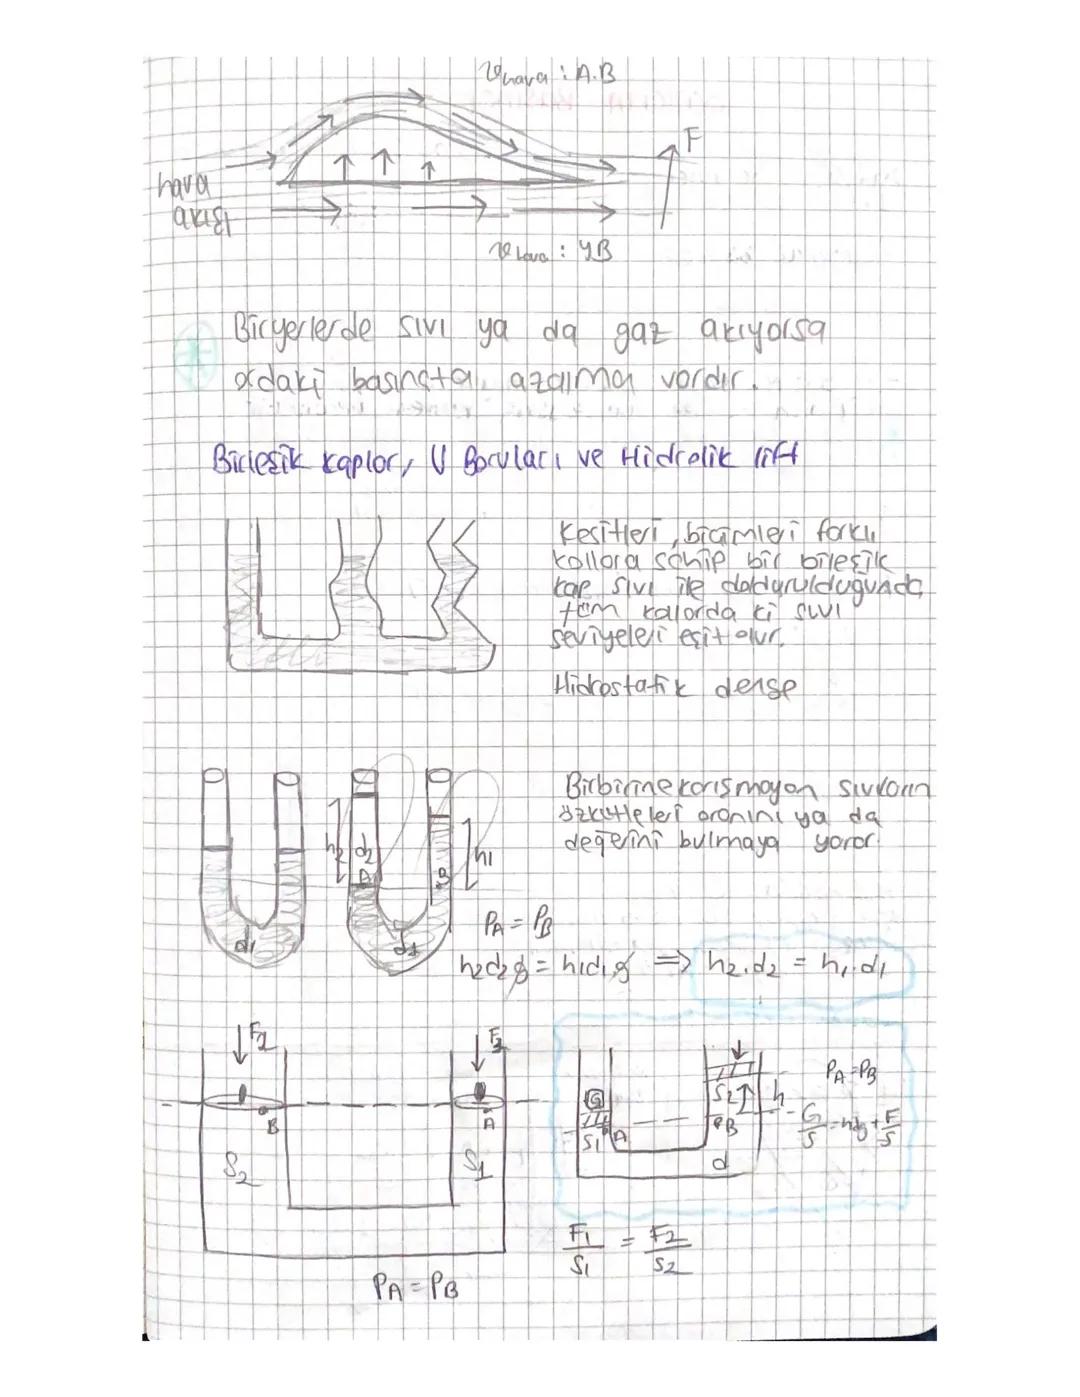 ϑhava : A.B
F
hava
akışı
ϑhava : YB
Biryerlerde sıvı ya da gaz akıyorsa
ordaki basınçta azalma vardır.
Birleşik kaplar, U Boruları ve Hidrolik lift
Kesitleri, biçimleri farklı
kollara sahip bir bileşik
kap sıvı ile doldurulduğunda
tüm kollarda ki sıvı
seviyeleri eşit olur.
Hidrostatik denge
Birbirine karışmayan sıvıların
özkütleleri oranını ya da
değerini bulmaya yarar.
h2 d2 h1
A B
d1
PA = PB
h2d2g = h1d1g => h2.d2 = h1.d1
F2
B A
S2 S1
PA = PB
G S2 h
S1 A B
d
PA = PB
G/S = hdg + F/S
F1/S1 = F2/S2